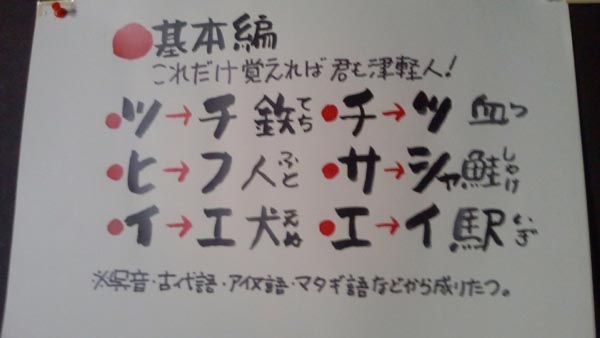 ●基本編
これだけ覚えれば君も津軽人!
●ツ→チ 鉄てち ●チ→ツ 血つ
●ヒ→フ 人ふと ●サ→シャ 鮭しゃけ
●イ→エ 犬えぬ ●エ→イ 駅いぎ
※呉音・古代語・アイヌ語・マタギ語などから成りたつ。